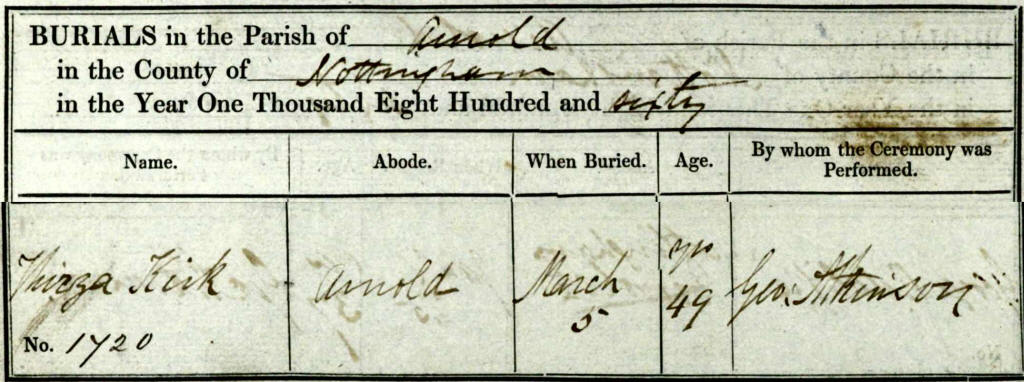 BURIALS in the Parish of Arnold
in the County of Nottingham
in the Year One Thousand Eight Hundred and sixty
Name. Abode. When Buried. Age. By whom the Ceremony was Performed.
Thirza Kirk Arnold March 5 49 yrs Geo. Atkinson
No. 1720